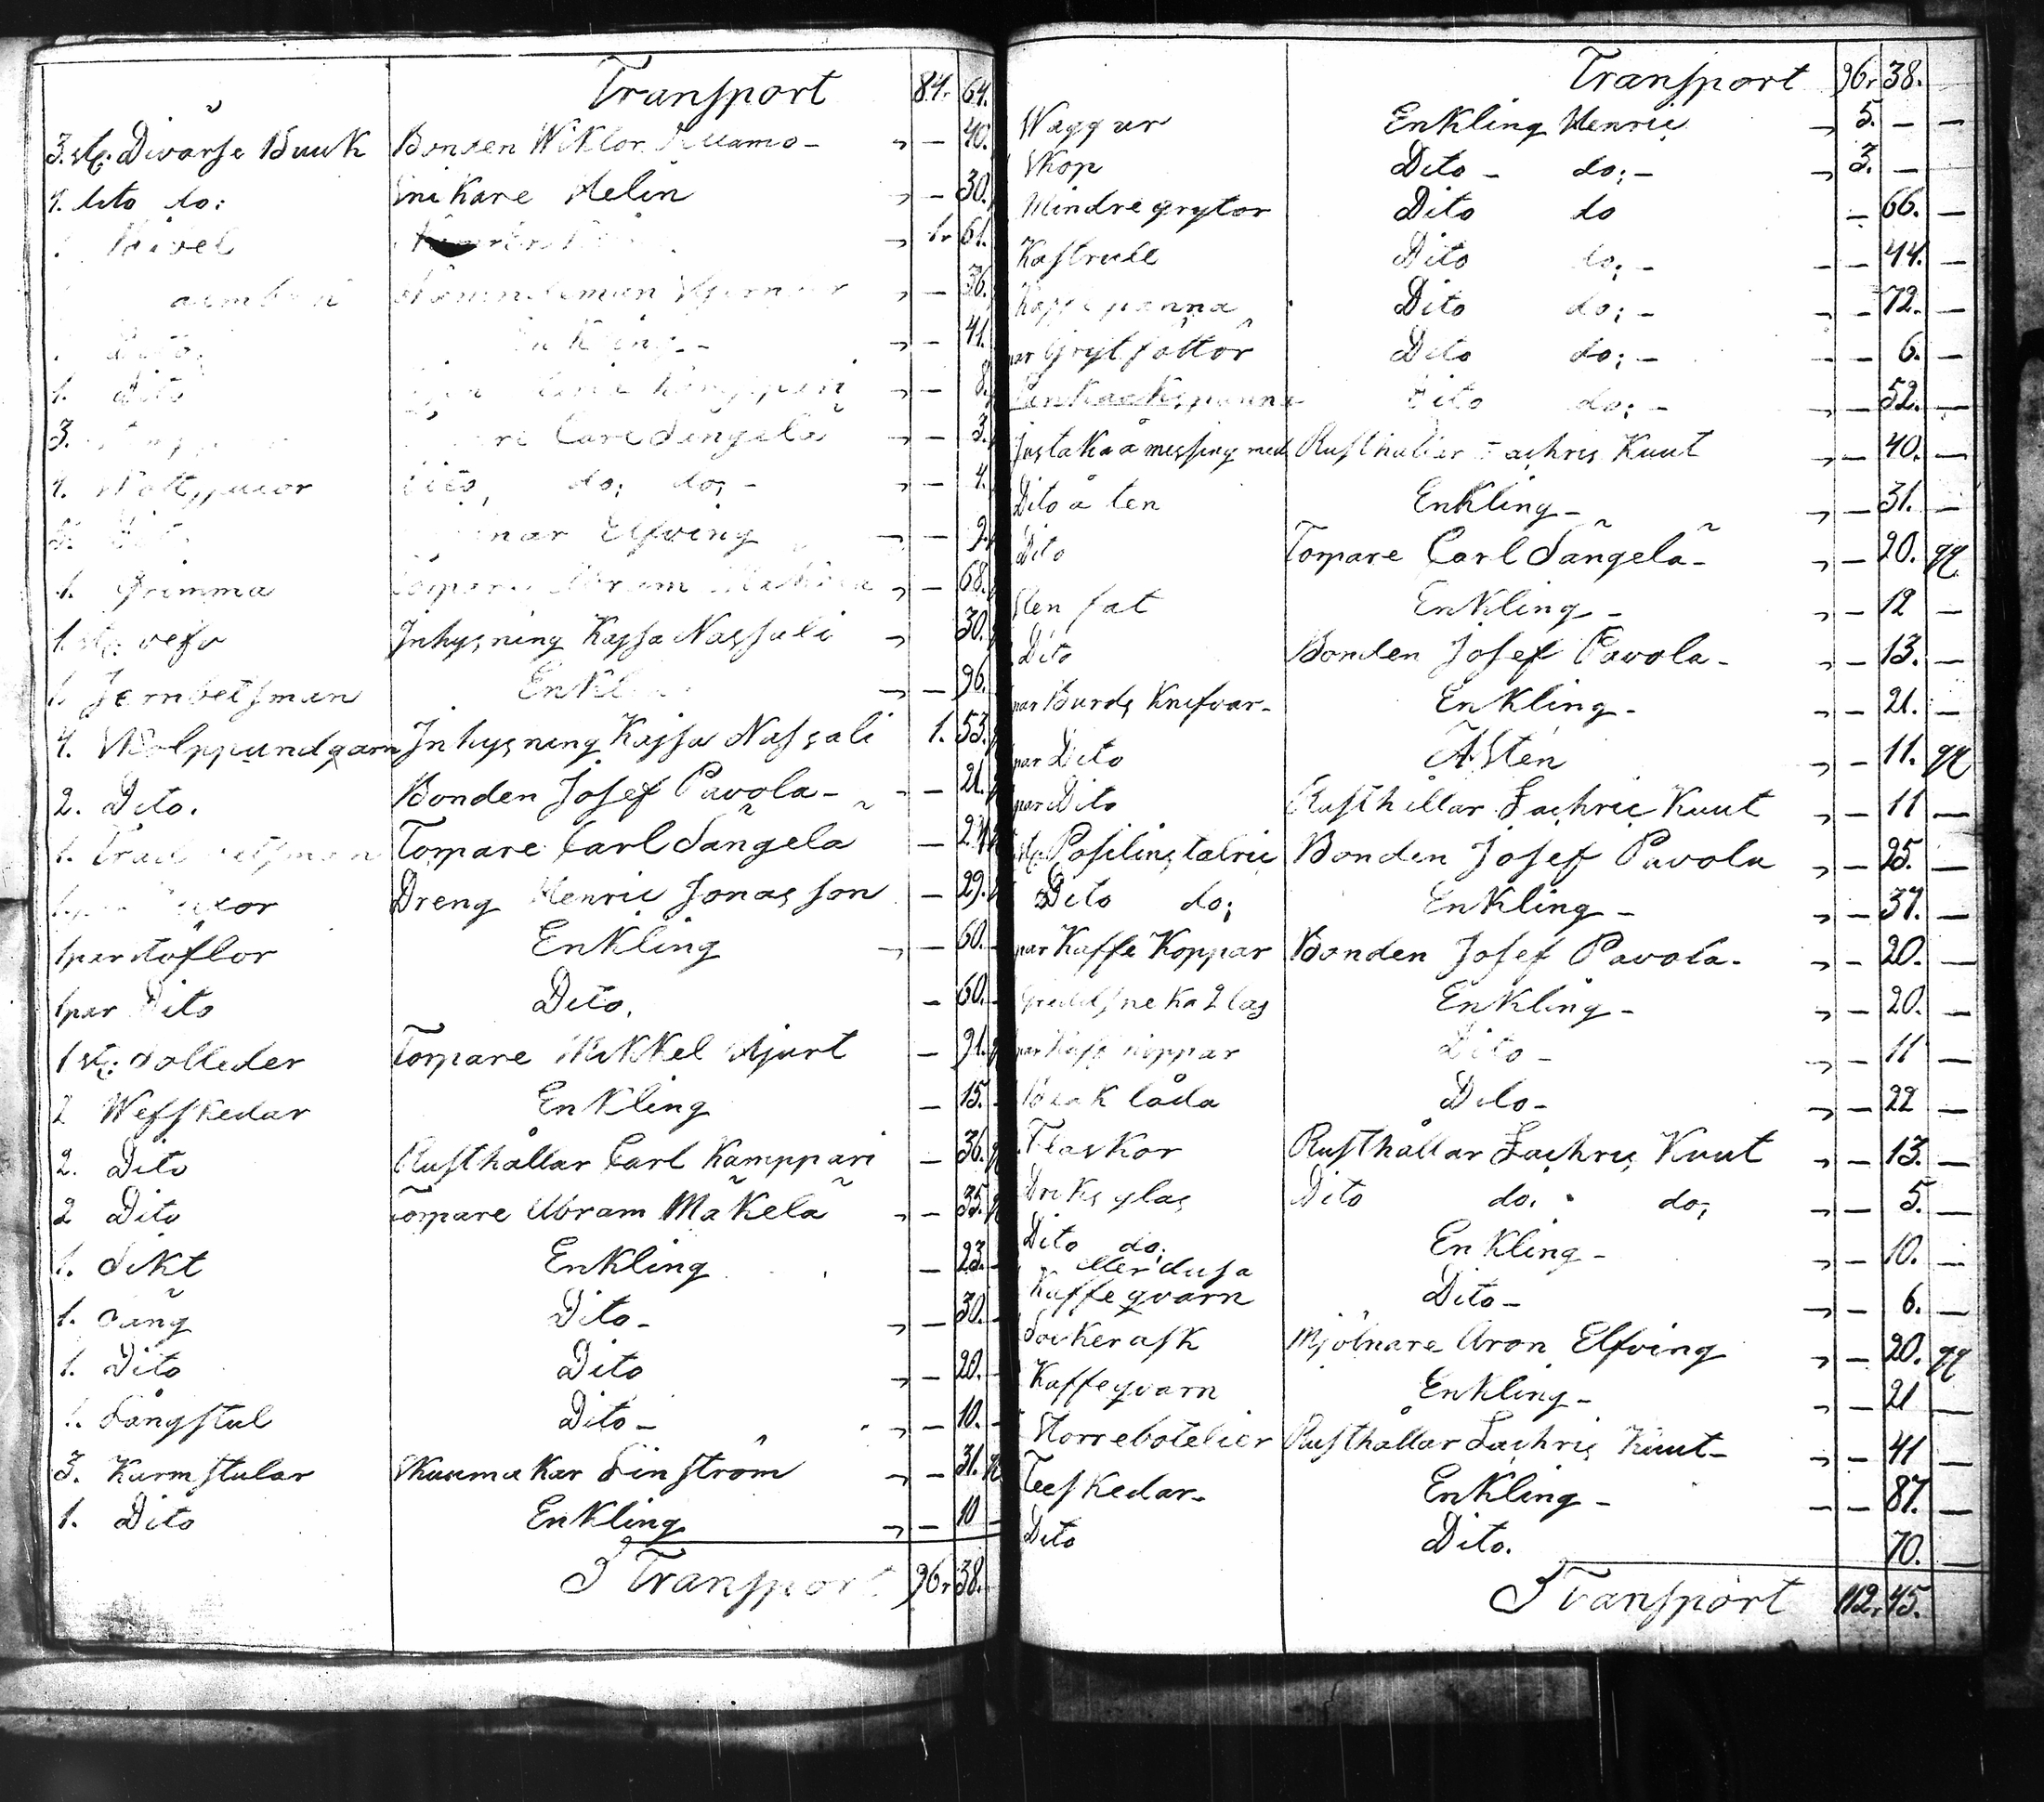 Transport 84. 64.
3. st: Divårse Buuk Bonden Wiktor – 40.
1. dito do: Snikare Helin – 30.
1. 61.
Nämndeman – 36.
Dito Enkling – 41.
1. Dito – 8.
3. Carl Sängelä – 3.
4. do: do: – 4.
Elfving – 2.
1. Grimma Torpare Abram – 68.
1 st: refv Inhysning Kajsa Nassali 30.
1. Jernbetsman Enkling – 96.
4. Skolppundgarn Inhysning Kajsa Nassali 1. 53.
2. Dito. Bonden Josef Pavola – – 21.
1. Torpare Carl Sängelä – 24.
Dreng Henric Jonasson – 29.
1 par töflor Enkling – 60.
1 par Dito Dito. – 60.
1 st: Solleder Torpare Mikkel Hjurt – 91.
2 Wefskedar Enkling – 15.
2. Dito Rusthållar Carl Kamppari – 36.
2 Dito Torpare Abram Mäkelä – 35.
1. Sikt Enkling – 23.
1. Säng Dito – – 30.
1. Dito Dito – 20.
1. Långstul Dito – – 10.
3. Karmstular Skuumakar Linström – 31.
1. Dito Enkling – 10
Transport 96. 38.
Transport 96. 38.
Waggur Enkling Henric 5. – –
Skop Dito – do: – 3. –
Mindre grytor Dito do – 66. –
Kastrull Dito do: – – 44. –
Kaffepanna Dito do: – – 72. –
par Grytföttör Dito do: – – 6. –
Dito do: – – 52. –
justaka å messing med Rusthållar Sachris Kuut – 40. –
Dito å ten Enkling – – 31. –
Dito Torpare Carl Sängelä – – 20. qq
Sten fat Enkling – – 12 –
Dito Bonden Josef Pavola – – 13. –
par Burds Knifvar – Enkling – – 21. –
par Dito A. Sten – 11. qq
par Dito Rusthållar Sachric Kuut – 11 –
st: Posilins talric Bonden Josef Pavola – 25. –
Dito do: Enkling – – 37. –
par Kaffe Koppar Bonden Josef Pavola – – 20. –
Enkling – – 20. –
par Kaffe Koppar Dito – – 11 –
låda Dito – – 22 –
Flaskor Rusthållar Sachris Kuut – 13. –
Driks glas Dito do. do: – 5. –
Dito do: Enkling – – 10. –
eller dusa
Kaffe qvarn Dito – – 6. –
Sockerask Mjölnare Aron Elfving – 20. qq
Kaffeqvarn Enkling – – 21 –
Storrebotelier Rusthållar Sachris Kuut – – 41 –
Teeskedar – Enkling – – 87. –
Dito Dito. 70. –
Transport 112. 45.